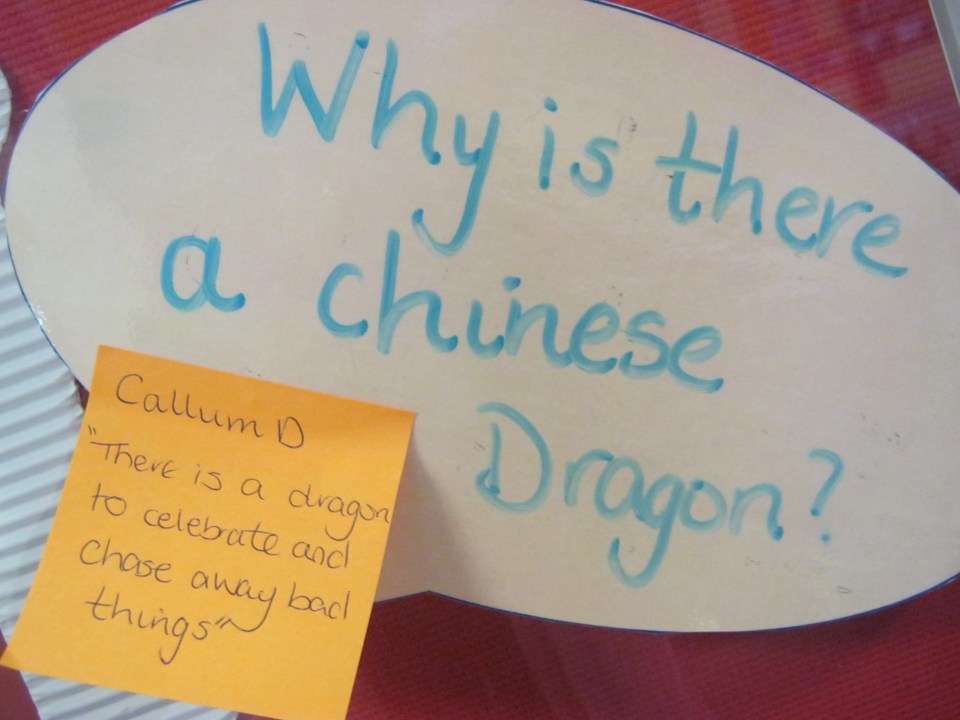 Why is there
a chinese
Dragon?
Callum D
"There is a dragon
to celebrate and
chase away bad
things"